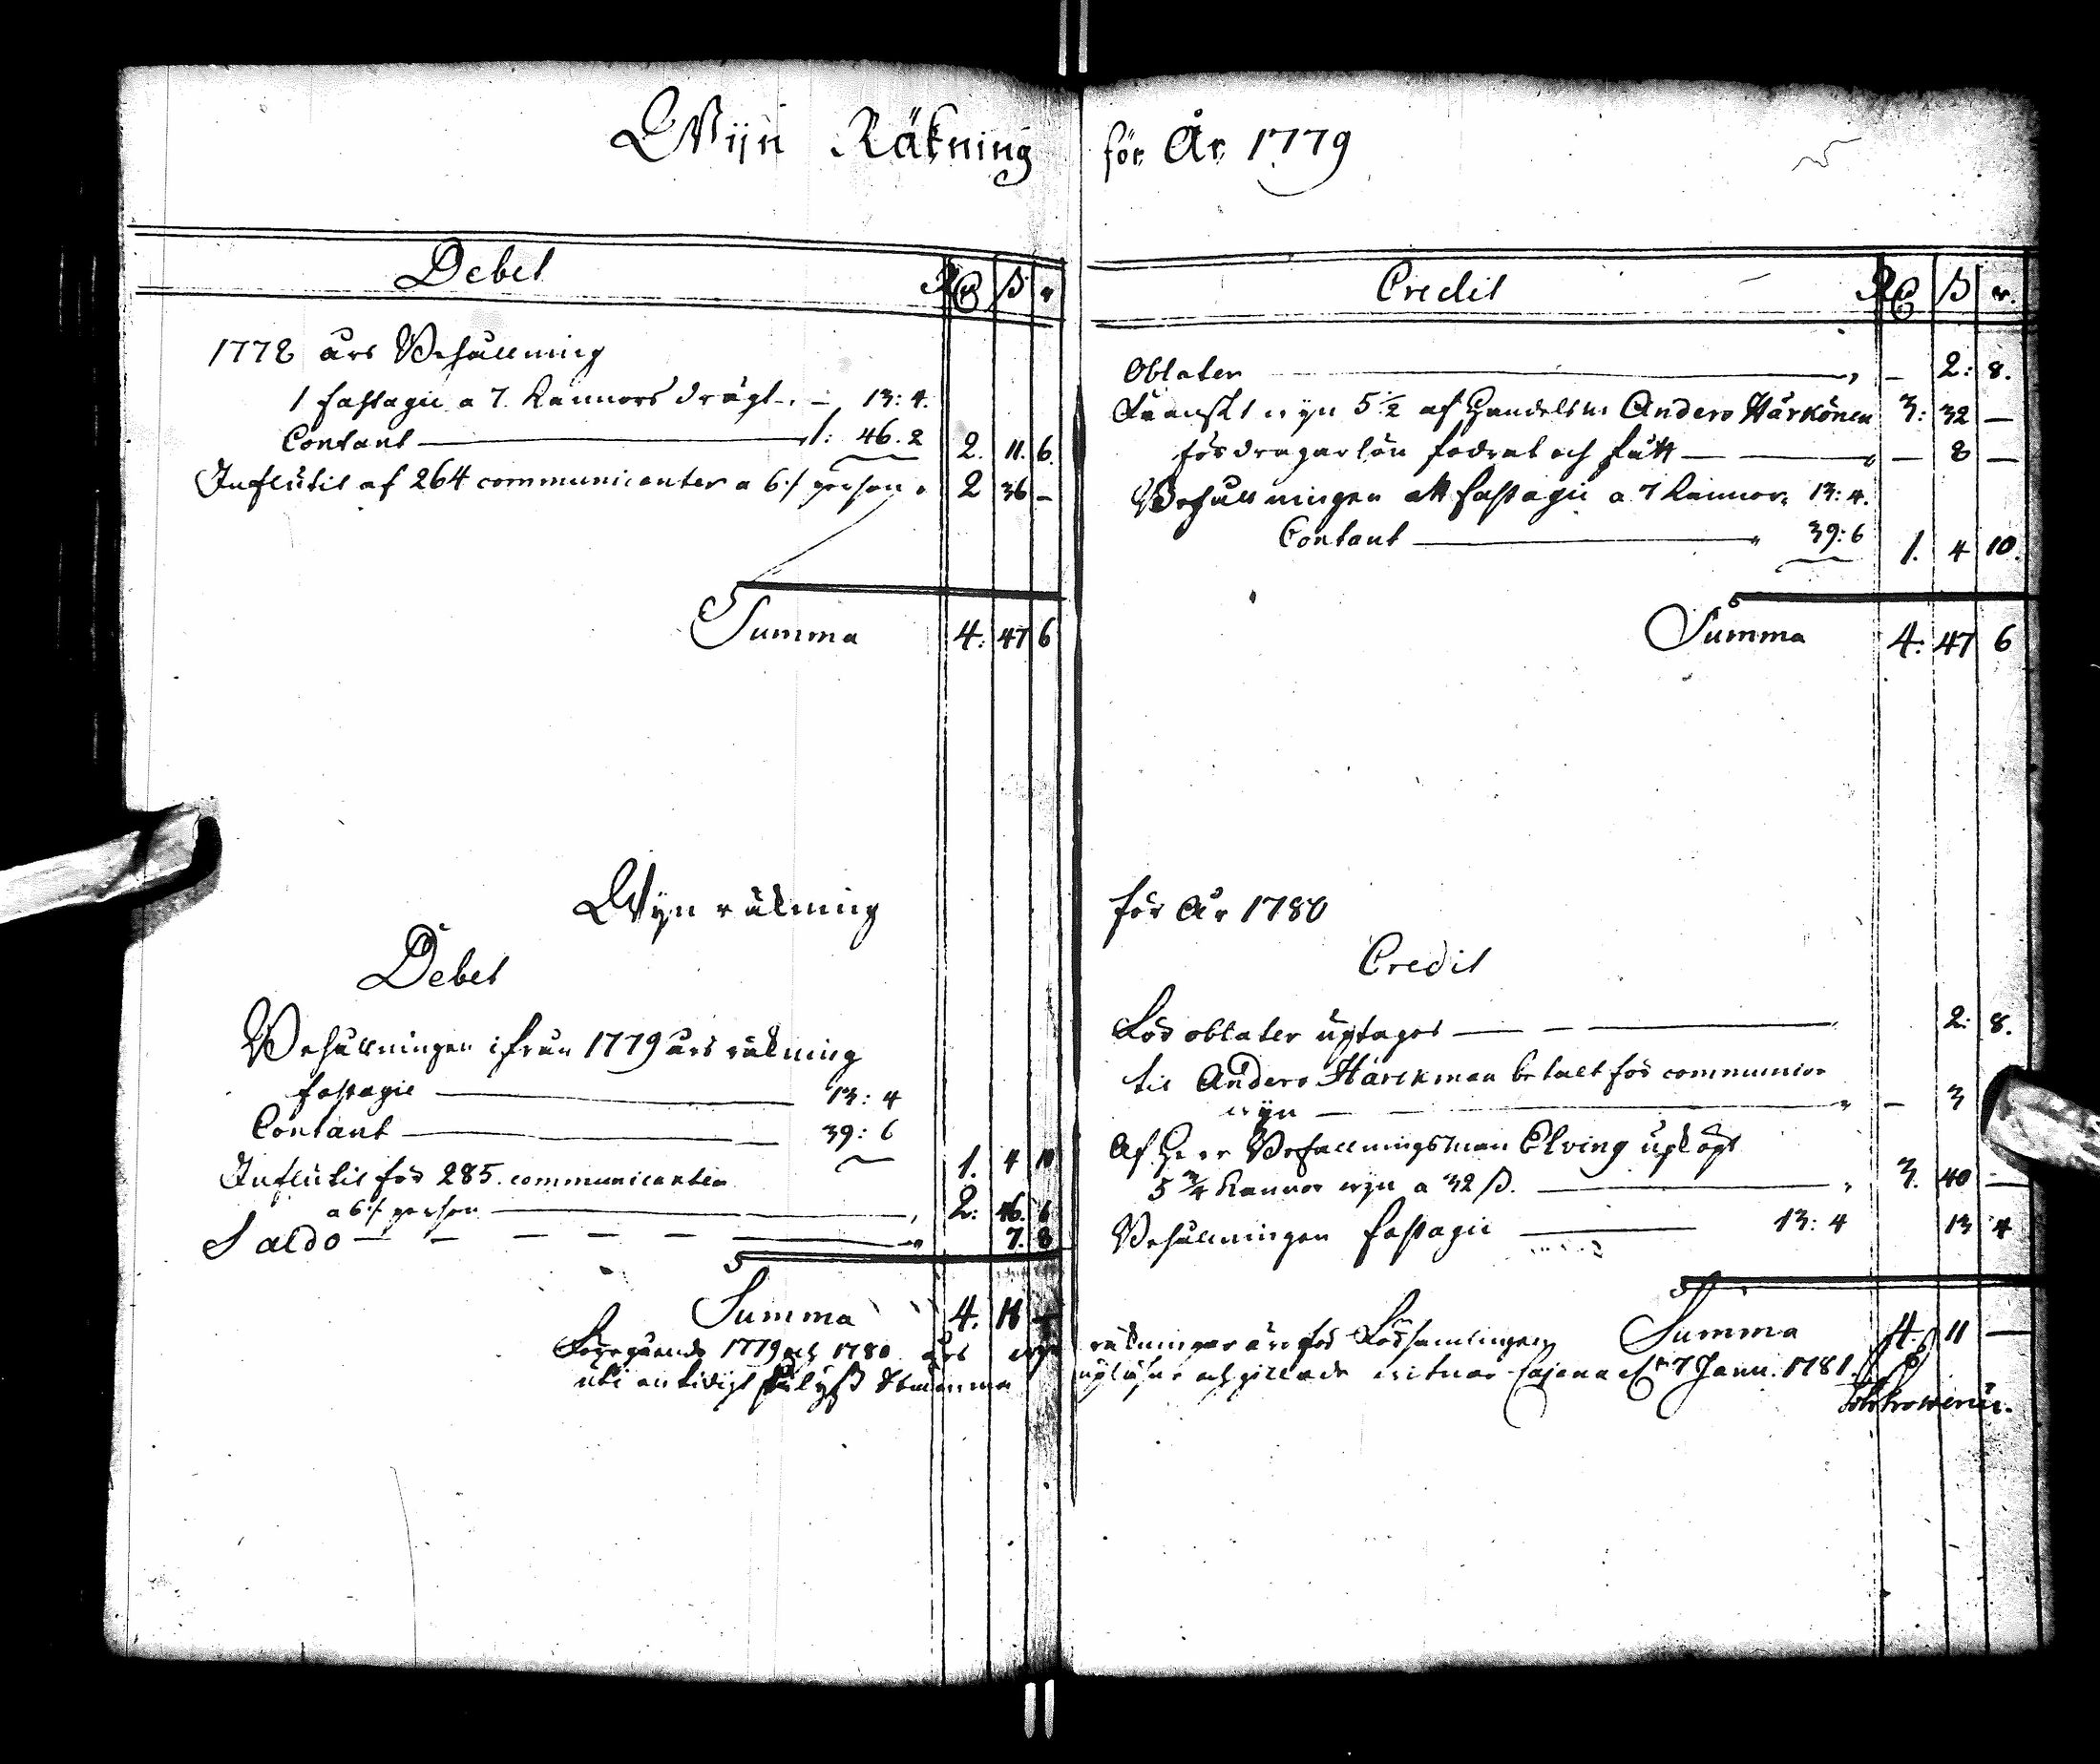 Wijn Räkning för År 1779
Debet Rd ß r
1778 års Behållning
1 fastagie a 7. Kannors drägt. – 13: 4.
Contant 1: 46. 2 2. 11. 6.
Influtit af 264 communicanter a 6./ person 2 36 –
Summa 4: 47 6
Credit Rd ß r.
Oblater – 2: 8.
Franskt wyn 5 1/2 af Handelsm Anders Härkönen 3: 32 –
fördragarlön fodrat och fått – 8 –
Behållningen ett fastagie a 7 Kannor 13: 4.
Contant 39: 6 1. 4 10.
Summa 4: 47 6
Wyn räkning för År 1780
Debet
Behållningen ifrån 1779 års räkning
fastagie 13: 4
Contant 39: 6 1. 4 10
Influtit för 285. communicanter
a 6./ person 2: 46. 6
Saldo 7. 8
Summa 4. 11 –
Credit
För oblater uptages 2: 8.
til Anders Härckman betalt för communion
wyn – 3
Af Herr Befallningsman Elving upköpt
5 3/4 Kannor wyn a 32 ß. 3. 40 –
Behållningen fastagie 13: 4 13 4
Summa 4. 11 –
Föregående 1779 och 1780 års wyn räkningar äro för Församlingen
uti en tidigt Stämma upläsne och gillade witnar Cajana d. 7 Janu. 1781.